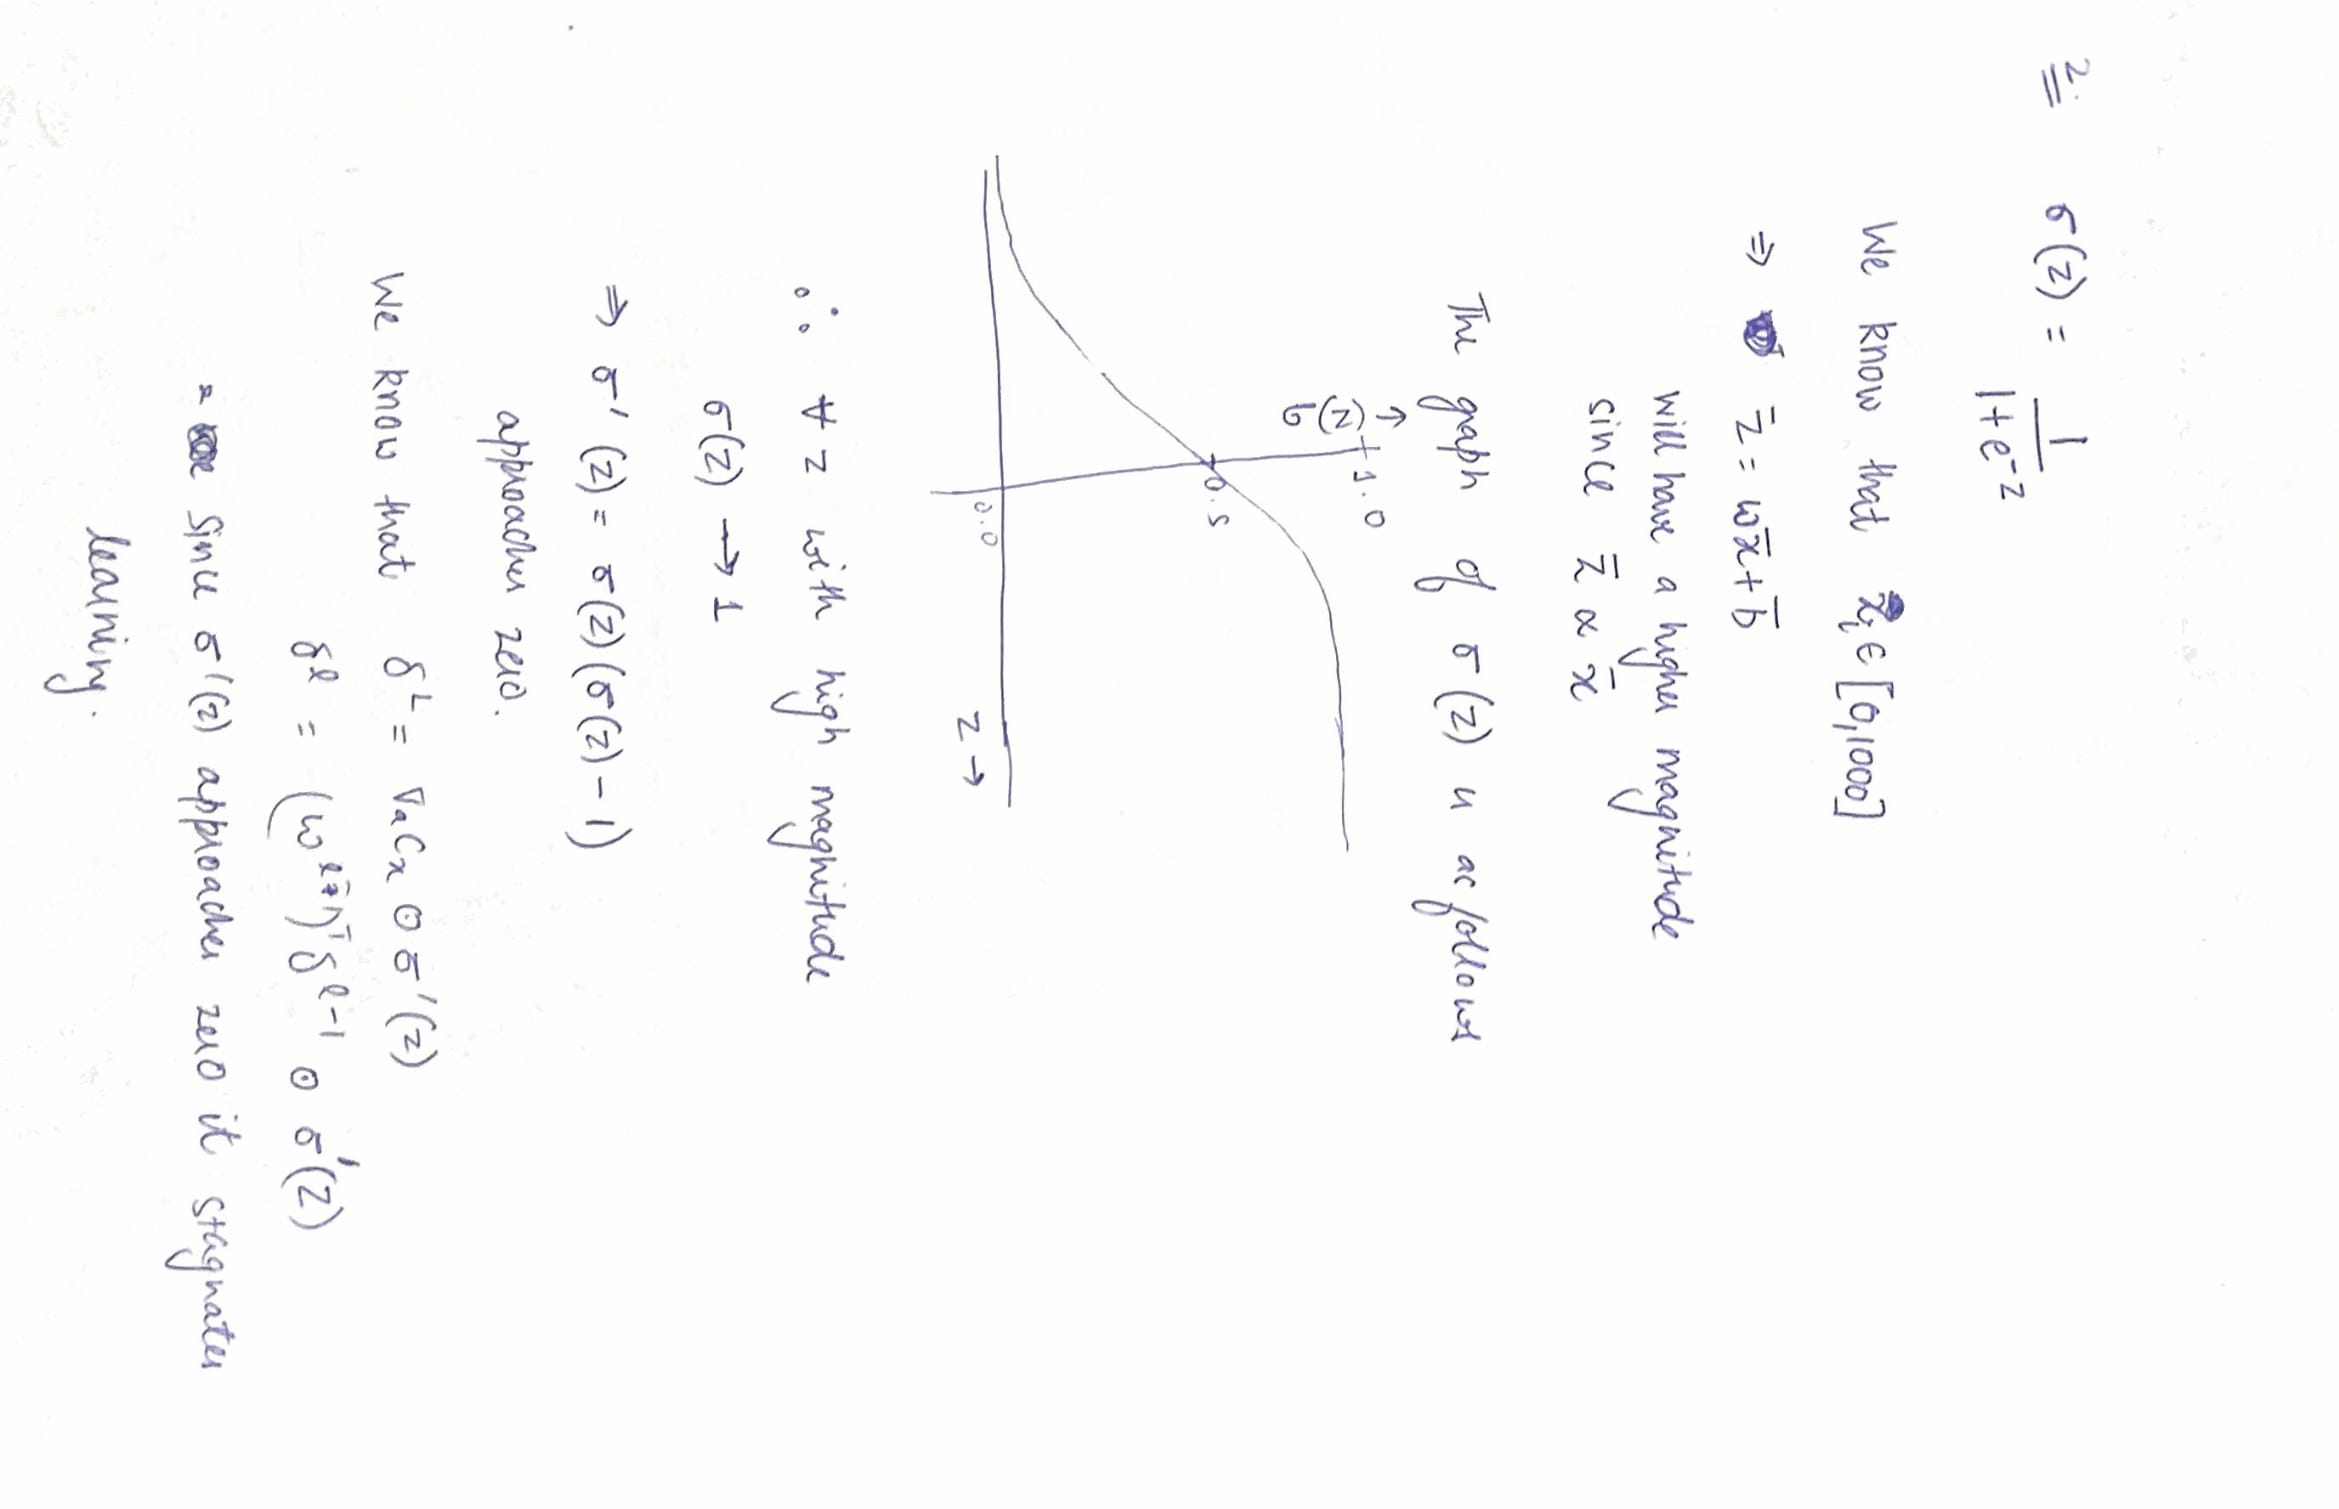 2. σ(z) = 1 / 1 + e^-z
We know that x_i ∈ [0, 1000]
⇒ z̄ = ωx̄ + b̄
will have a higher magnitude
since z̄ α x̄
The graph of σ(z) is as follows
σ(z) → 1.0
0.5
0.0
z →
∴ ∀ z with high magnitude
σ(z) → 1
⇒ σ'(z) = σ(z)(σ(z) - 1)
approaches zero.
We know that δ^L = ∇_a C_x ⊙ σ'(z)
δ^l = (ω^l+1)^T δ^l-1 ⊙ σ'(z)
Since σ'(z) approaches zero it stagnates
learning.